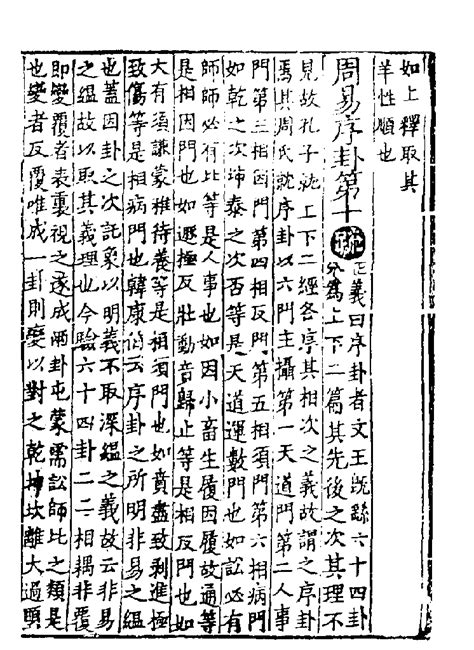 如上釋取其
羊性順也
周易序卦第十疏
正義曰序卦者文王既䟽六十四卦
分爲上下二篇其先後之次其理不
見故孔子就上下二經各序其相次之義故謂之序卦
焉其周氏就序卦以六門主攝第一天道門第二人事
門第三相因門第四相反門第五相須門第六相病門
如乾之次坤泰之次否等是天道運數門也如訟必有
師師必有比等是人事也如因小畜生履因履故通等
是相因門也如遯極反壯動音歸止等是相反門也如
大有須謙蒙稚待養等是相須門也如賁盡致剥進極
致傷等是相病門也韓康伯云序卦之所明非易之緼
也蓋因卦之次託象以明義不取深緼之義故云非易
之緼故以取其義理也今驗六十四卦二二相耦非覆
即變覆者表裏視之遂成兩卦屯蒙需訟師比之類是
也變者反覆唯成一卦則變以對之乾坤坎離大過頤